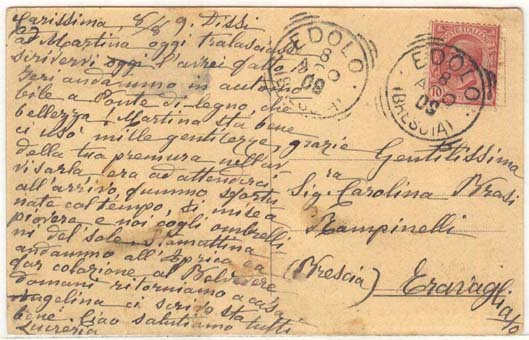 Carissima 8/8 9. Dissi
ad Martina oggi tralasciassi
scriverti oggi l'avrei fatto
Ieri andammo in automo
bile a Ponte di Legno, che
bellezza, Martina sta bene
ci usò mille gentilezze, grazie
della tua premura nell'av
visarla, era ad attenderci
all'arrivo, fummo sfortu
nate col tempo, si mise a
piovere e noi cogli ombrelli
ni del sole. Stamattina
andammo all'Aprica a
far colazione al Belvedere
domani ritorniamo a casa
Angelina ci scrisse sta
bene. Ciao salutiamo tutti
Lucrezia
EDOLO
8
09
(BRESCIA)
POSTE ITALIANE
10
EDOLO
8
09
(BRESCIA)
Gentilissima
Sig.ra Carolina Brasi
Rampinelli
(Brescia) Travagliato